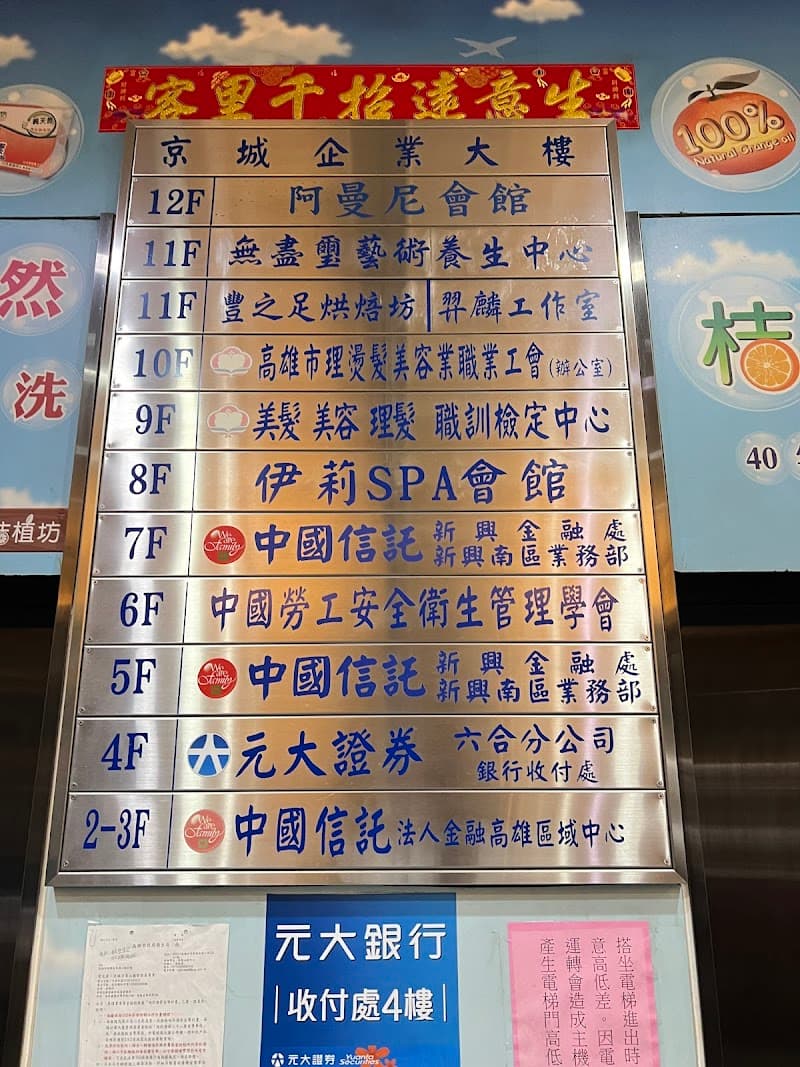 生意遠招千里客
京城企業大樓
12F 阿曼尼會館
11F 無盡璽藝術養生中心
11F 豐之足烘焙坊 羿麟工作室
10F 高雄市理燙髮美容業職業工會(辦公室)
9F 美髮 美容 理髮 職訓檢定中心
8F 伊莉SPA會館
7F We are Family 中國信託 新興金融處
新興南區業務部
6F 中國勞工安全衛生管理學會
5F We are Family 中國信託 新興金融處
新興南區業務部
4F 元大證券 六合分公司
銀行收付處
2-3F We are Family 中國信託 法人金融高雄區域中心
100%
Natural Orange oil
然
洗
植坊
桔
40
元大銀行
收付處4樓
元大證券 Yuanta Securities
搭坐電梯進出時
意高低差。因電
運轉會造成主機
產生電梯門高低